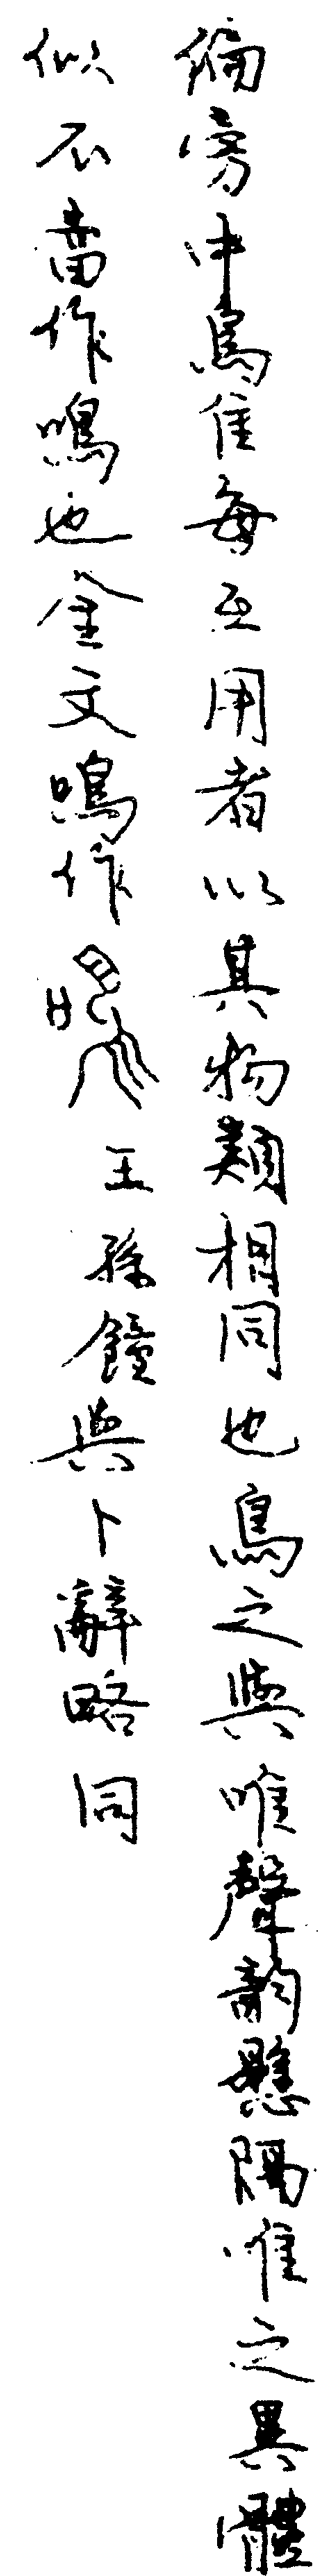 偏旁中鳥隹每互用者以其物類相同也鳥之與唯聲韵懸隔唯之異體
似不當作鳴也金文鳴作王孫鐘與卜辭略同